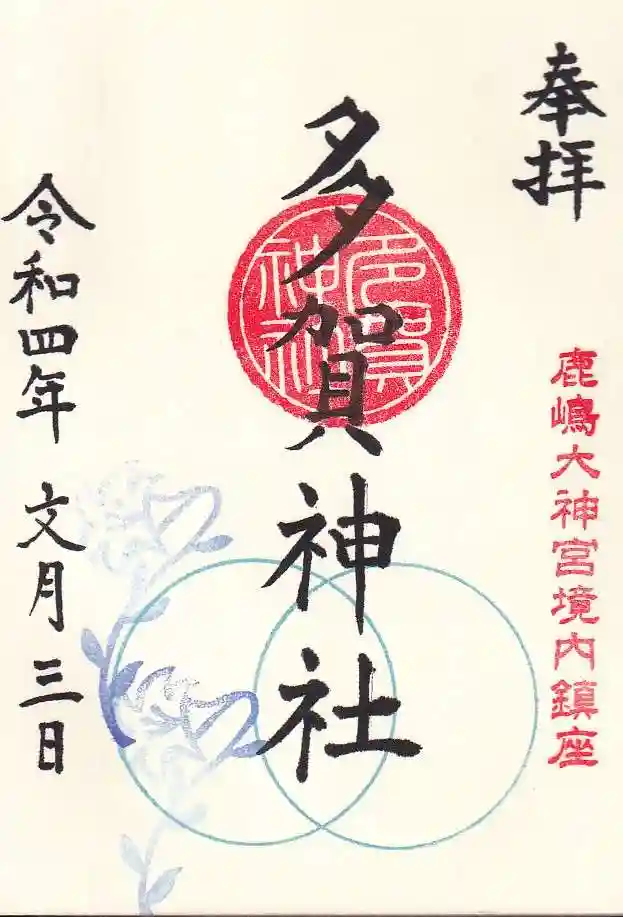 奉拝
鹿嶋大神宮境内鎮座
多賀神社
多賀神社
令和四年 文月 三日